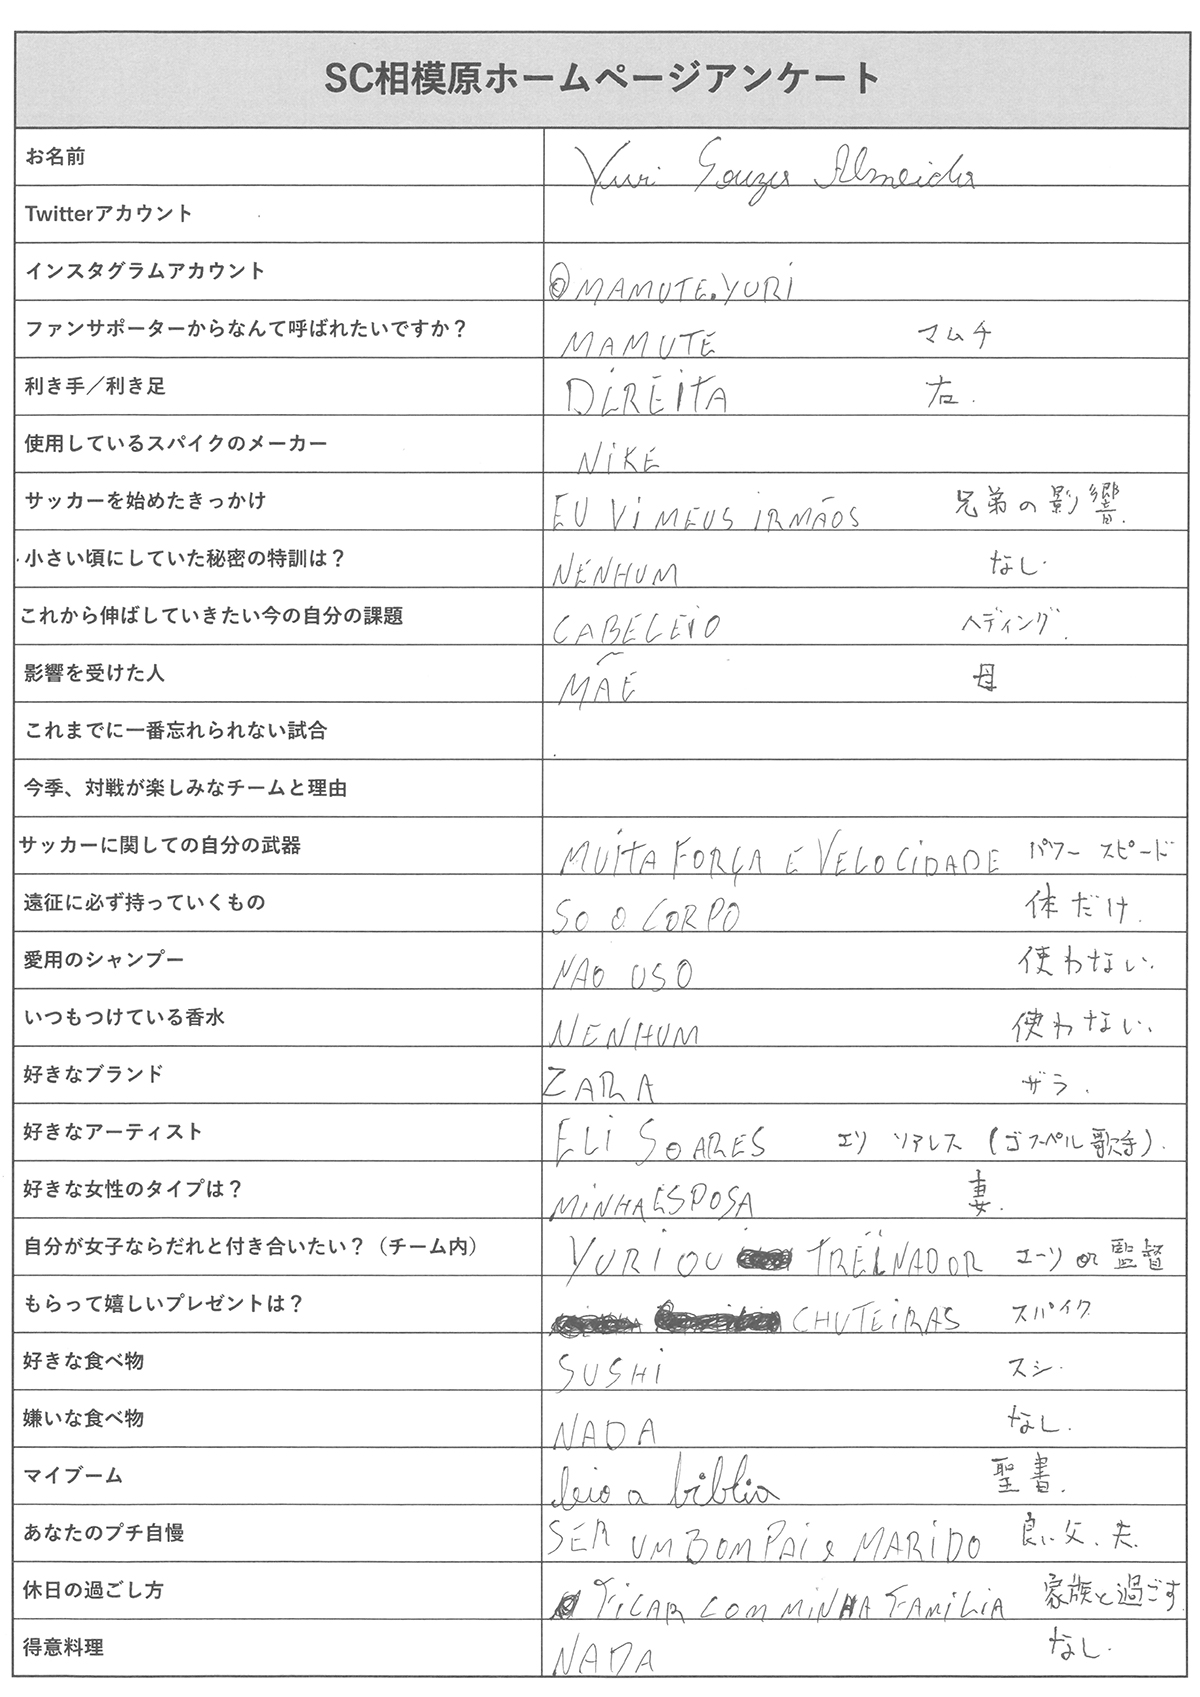 SC相模原ホームページアンケート
お名前 Yuri Souza Almeida
Twitterアカウント
インスタグラムアカウント @MAMUTE.YURI
ファンサポーターからなんて呼ばれたいですか？ MAMUTE マムチ
利き手／利き足 DIREITA 右.
使用しているスパイクのメーカー NIKE
サッカーを始めたきっかけ EU VI MEUS IRMÃOS 兄弟の影響.
小さい頃にしていた秘密の特訓は？ NENHUM なし.
これから伸ばしていきたい今の自分の課題 CABECEIO ヘディング.
影響を受けた人 MÃE 母
これまでに一番忘れられない試合
今季、対戦が楽しみなチームと理由
サッカーに関しての自分の武器 MUITA FORÇA E VELOCIDADE パワー スピード
遠征に必ず持っていくもの SO O CORPO 体だけ.
愛用のシャンプー NAO USO 使わない.
いつもつけている香水 NENHUM 使わない.
好きなブランド ZARA ザラ.
好きなアーティスト ELI SOARES エリ ソアレス (ゴスペル歌手).
好きな女性のタイプは？ MINHA ESPOSA 妻.
自分が女子ならだれと付き合いたい？（チーム内） YURI OU TREINADOR ユーリ or 監督
もらって嬉しいプレゼントは？ CHUTEIRAS スパイク
好きな食べ物 SUSHI スシ.
嫌いな食べ物 NADA なし.
マイブーム leio a biblia 聖書.
あなたのプチ自慢 SER UM BOM PAI e MARIDO 良い父、夫.
休日の過ごし方 FICAR COM MINHA FAMILIA 家族と過ごす.
得意料理 NADA なし.